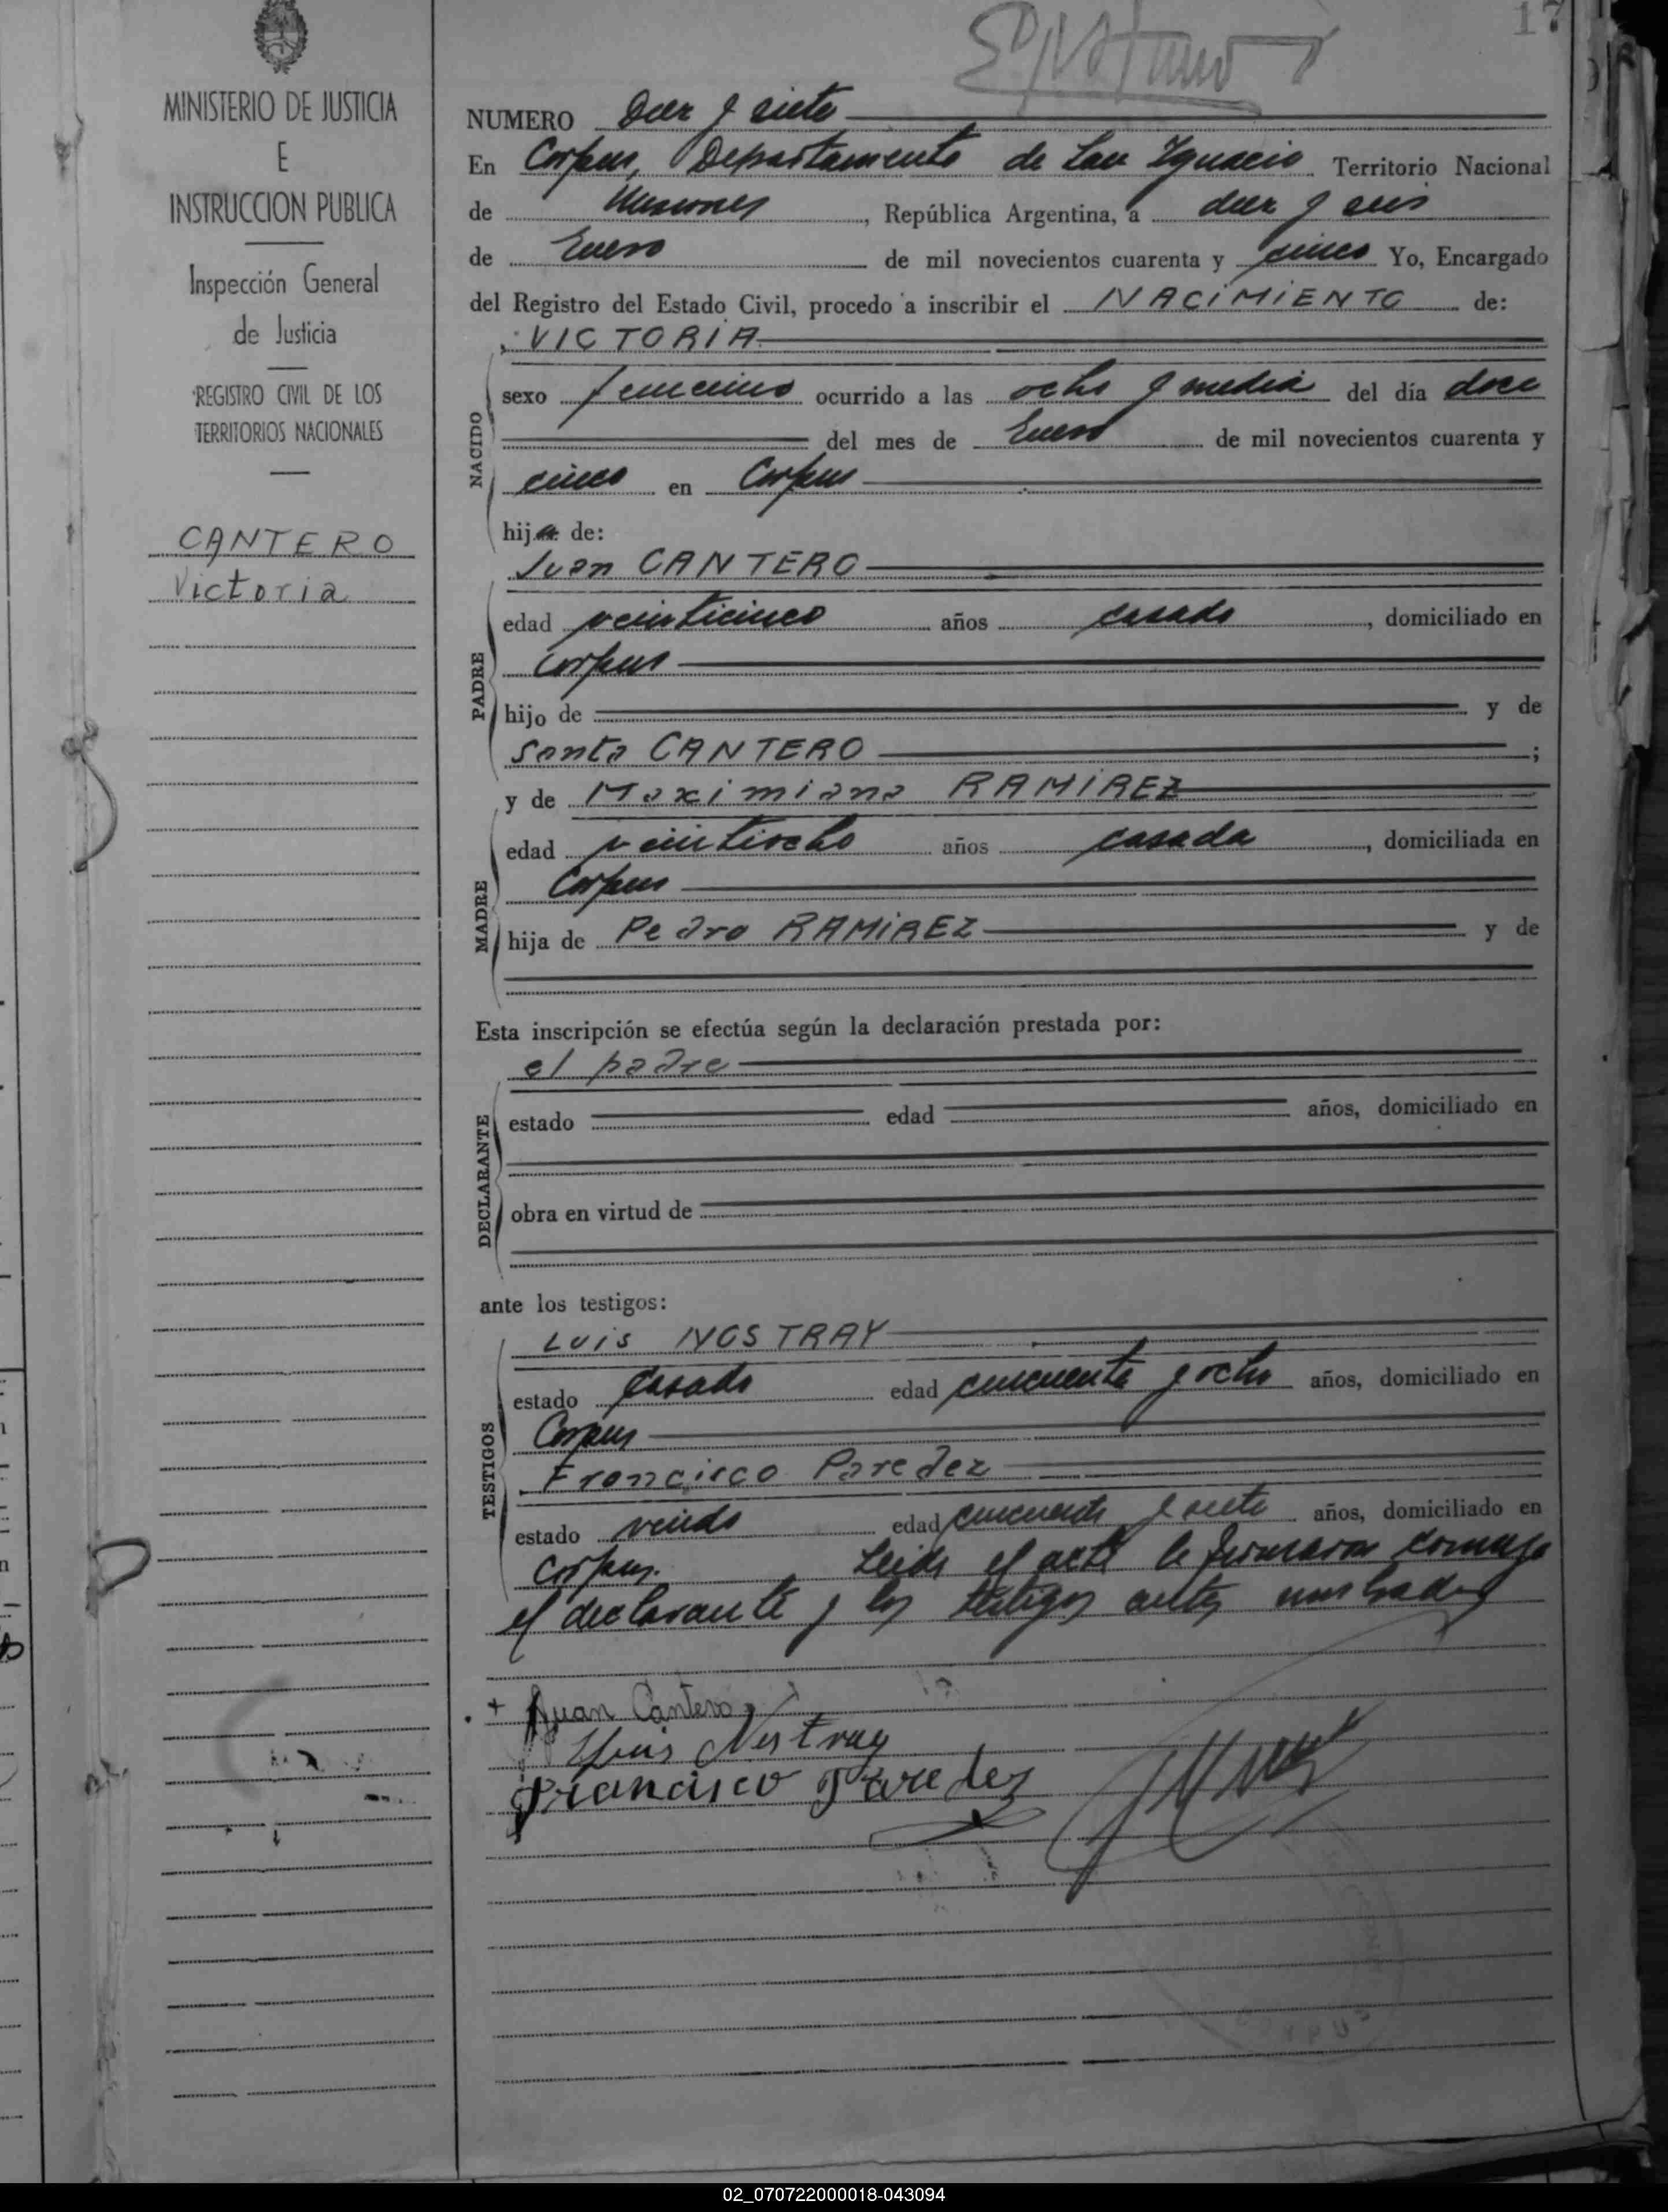 17
MINISTERIO DE JUSTICIA
E
INSTRUCCION PUBLICA
Inspección General
de Justicia
REGISTRO CIVIL DE LOS
TERRITORIOS NACIONALES
CANTERO
Victoria
NUMERO Diez y siete
En Corpus, Departamento de San Ignacio Territorio Nacional
de Misiones, República Argentina, a diez y seis
de Enero de mil novecientos cuarenta y cinco Yo, Encargado
del Registro del Estado Civil, procedo a inscribir el NACIMIENTO de:
VICTORIA
NACIDO
sexo femenino ocurrido a las ocho y media del día doce
del mes de Enero de mil novecientos cuarenta y
cinco en Corpus
hija de:
Juan CANTERO
PADRE
edad veinticinco años casado, domiciliado en
Corpus
hijo de y de
Santa CANTERO;
y de Maximiana RAMIREZ
MADRE
edad veintiocho años casada, domiciliada en
Corpus
hija de Pedro RAMIREZ y de
Esta inscripción se efectúa según la declaración prestada por:
el padre
DECLARANTE
estado edad años, domiciliado en
obra en virtud de
ante los testigos:
Luis NOSTRAY
TESTIGOS
estado casado edad cincuenta y ocho años, domiciliado en
Corpus
Francisco Paredez
estado viudo edad cincuenta y siete años, domiciliado en
Corpus. Leida el acta la firmaron conmigo
el declarante y los testigos antes nombrados
+ Juan Cantero
Luis Nostray
Francisco Paredez
CORPUS
02_070722000018-043094